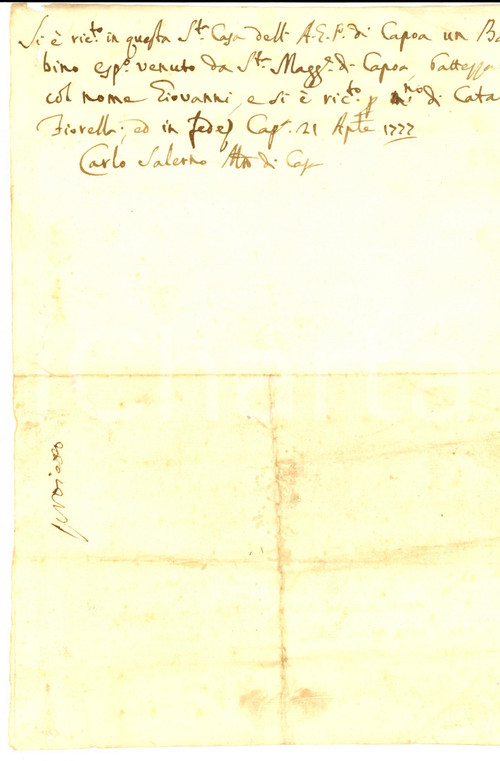 Si è ric.to in questa S.ta Casa dell A.G.P. di Capoa un Ba
bino esp.o venuto da S.ta Magg.e di Capoa, battezza
col nome Giovanni, e si è ric.to p m.no di Cata
Fiorella; ed in fede Cap.a 21 Ap.le 1777
Carlo Salerno di Cap
iCharta